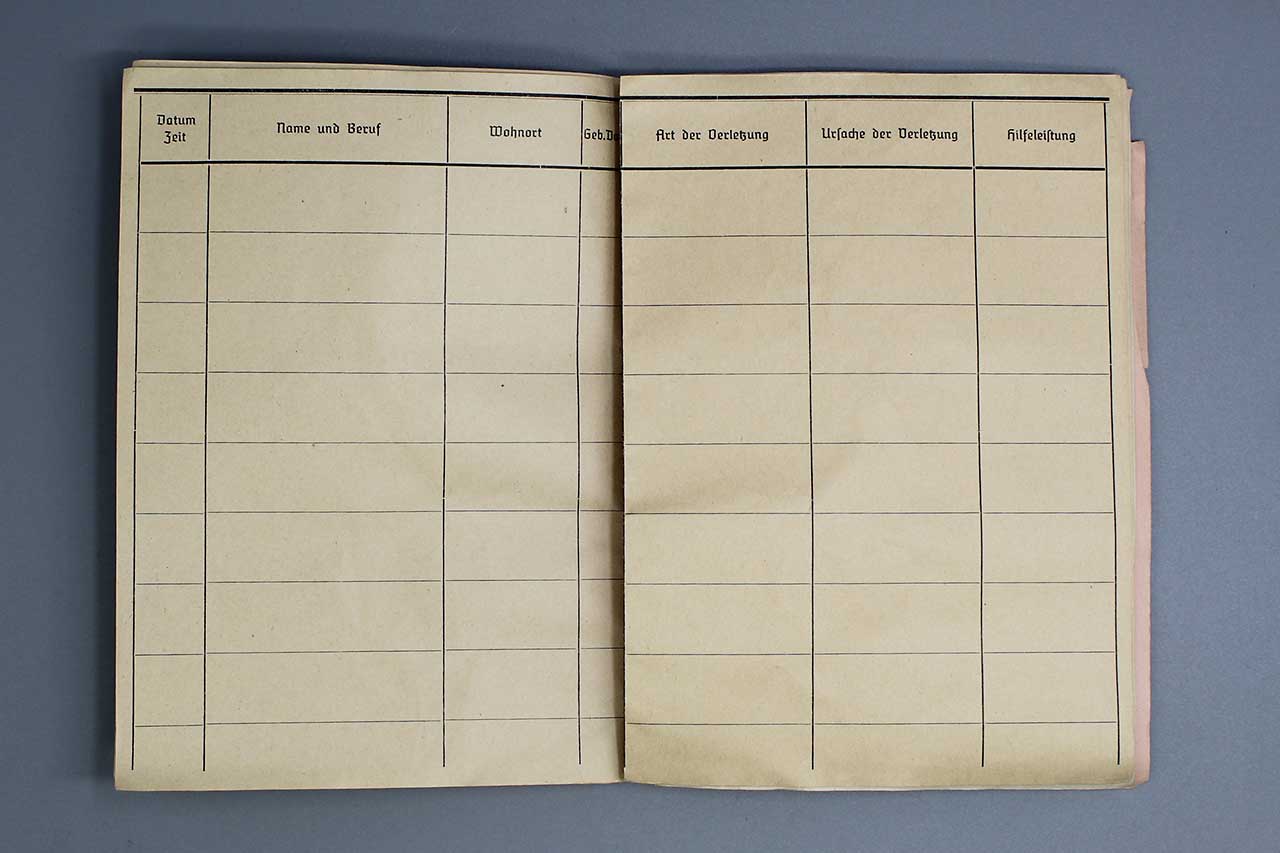 Datum
Zeit
Name und Beruf
Wohnort
Geb.Da
Art der Verletzung
Ursache der Verletzung
Hilfeleistung